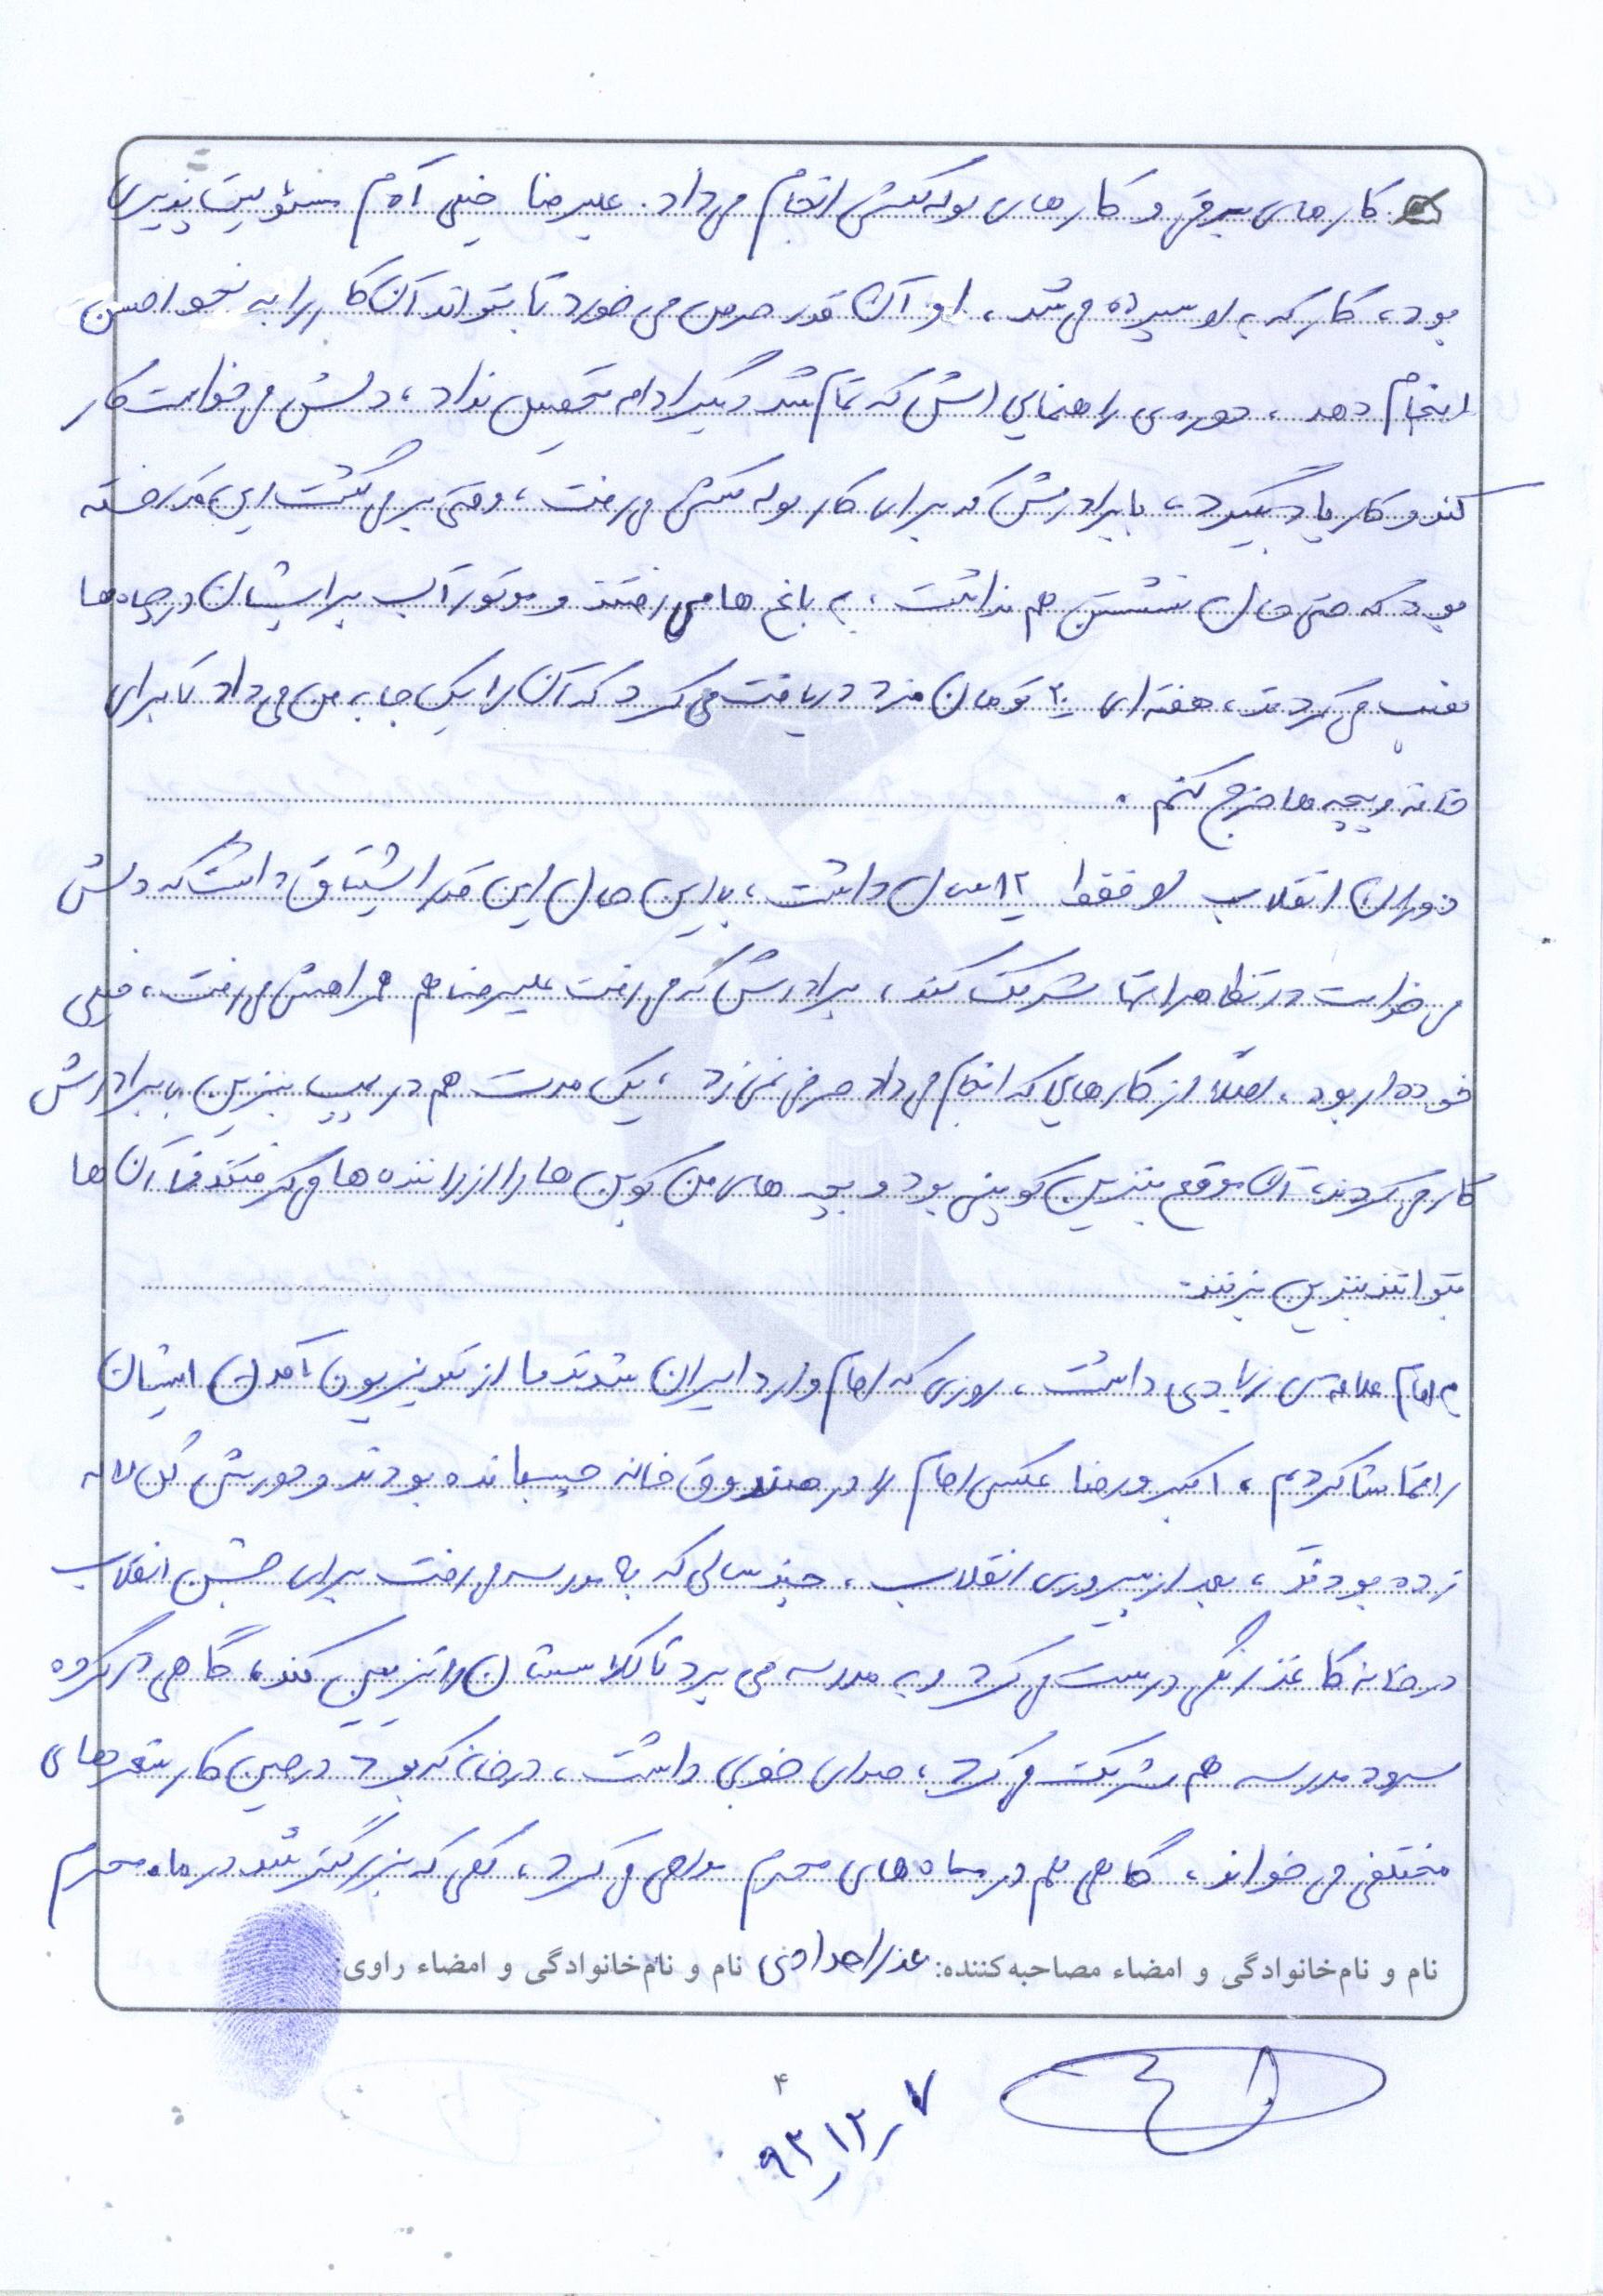 کارهای برقی و کارهای لوله کشی انجام می‌داد. علیرضا خیلی آدم مسئولیت پذیری
بود، کار که به او سپرده می‌شد، او آن قدر حرص می خورد تا بتواند آن کار را به نحو احسن
انجام دهد، دوره‌ی راهنمایی اش که تمام شد دیگر ادامه تحصیل نداد، دلش می خواست کار
کند و کار یاد بگیرد، با برادرش که برای کار لوله کشی می‌رفت، وقتی بر می گشت این قدر خسته
بود که حتی حال نشستن هم نداشت، به باغ ها می رفتند و موتور آب برایشان در چاه‌ها
نصب می کردند، هفته ای ۲۰ تومان مزد دریافت می کرد که آن را یک جا به من می داد تا برای
خانه و بچه ها خرج کنم.
دوران انقلاب او فقط ۱۲ سال داشت، با این حال این قدر اشتیاق داشت که دلش
می خواست در تظاهراتها شرکت کند، برادرش که می رفت علیرضا هم همراهش می رفت، خیلی
خوددار بود، اصلاً از کارهایی که انجام می داد حرفی نمی زد، یک مدت هم در پمپ بنزین با برادرش
کار می کردند، آن موقع بنزین کوپنی بود و بچه های من کوپن ها را از راننده ها می گرفتند تا آن ها
بتوانند بنزین بزنند.
به امام علاقه‌ی زیادی داشت، روزی که امام وارد ایران شدند ما از تلویزیون آمدن ایشان
را تماشا کردیم، اکبر و رضا عکس امام را در صندوق خانه چسبانده بودند و دورش گل لاله
زده بودند، بعد از پیروزی انقلاب، چند سالی که به مدرسه می رفت برای جشن انقلاب
در خانه کاغذ رنگی درست می کرد و به مدرسه می برد تا کلاسشان را تزیین کند، گاهی در گروه
سرود مدرسه هم شرکت می کرد، صدای خوبی داشت، در خانه که بود در حین کار شعرهای
مختلفی می خواند، گاهی هم در ماه های محرم مداحی می کرد، کمی که بزرگتر شد در ماه محرم
نام و نام‌خانوادگی و امضاء مصاحبه‌کننده: عذرا حدادی نام و نام‌خانوادگی و امضاء راوی:
۴
۹۳/۱۲/۷